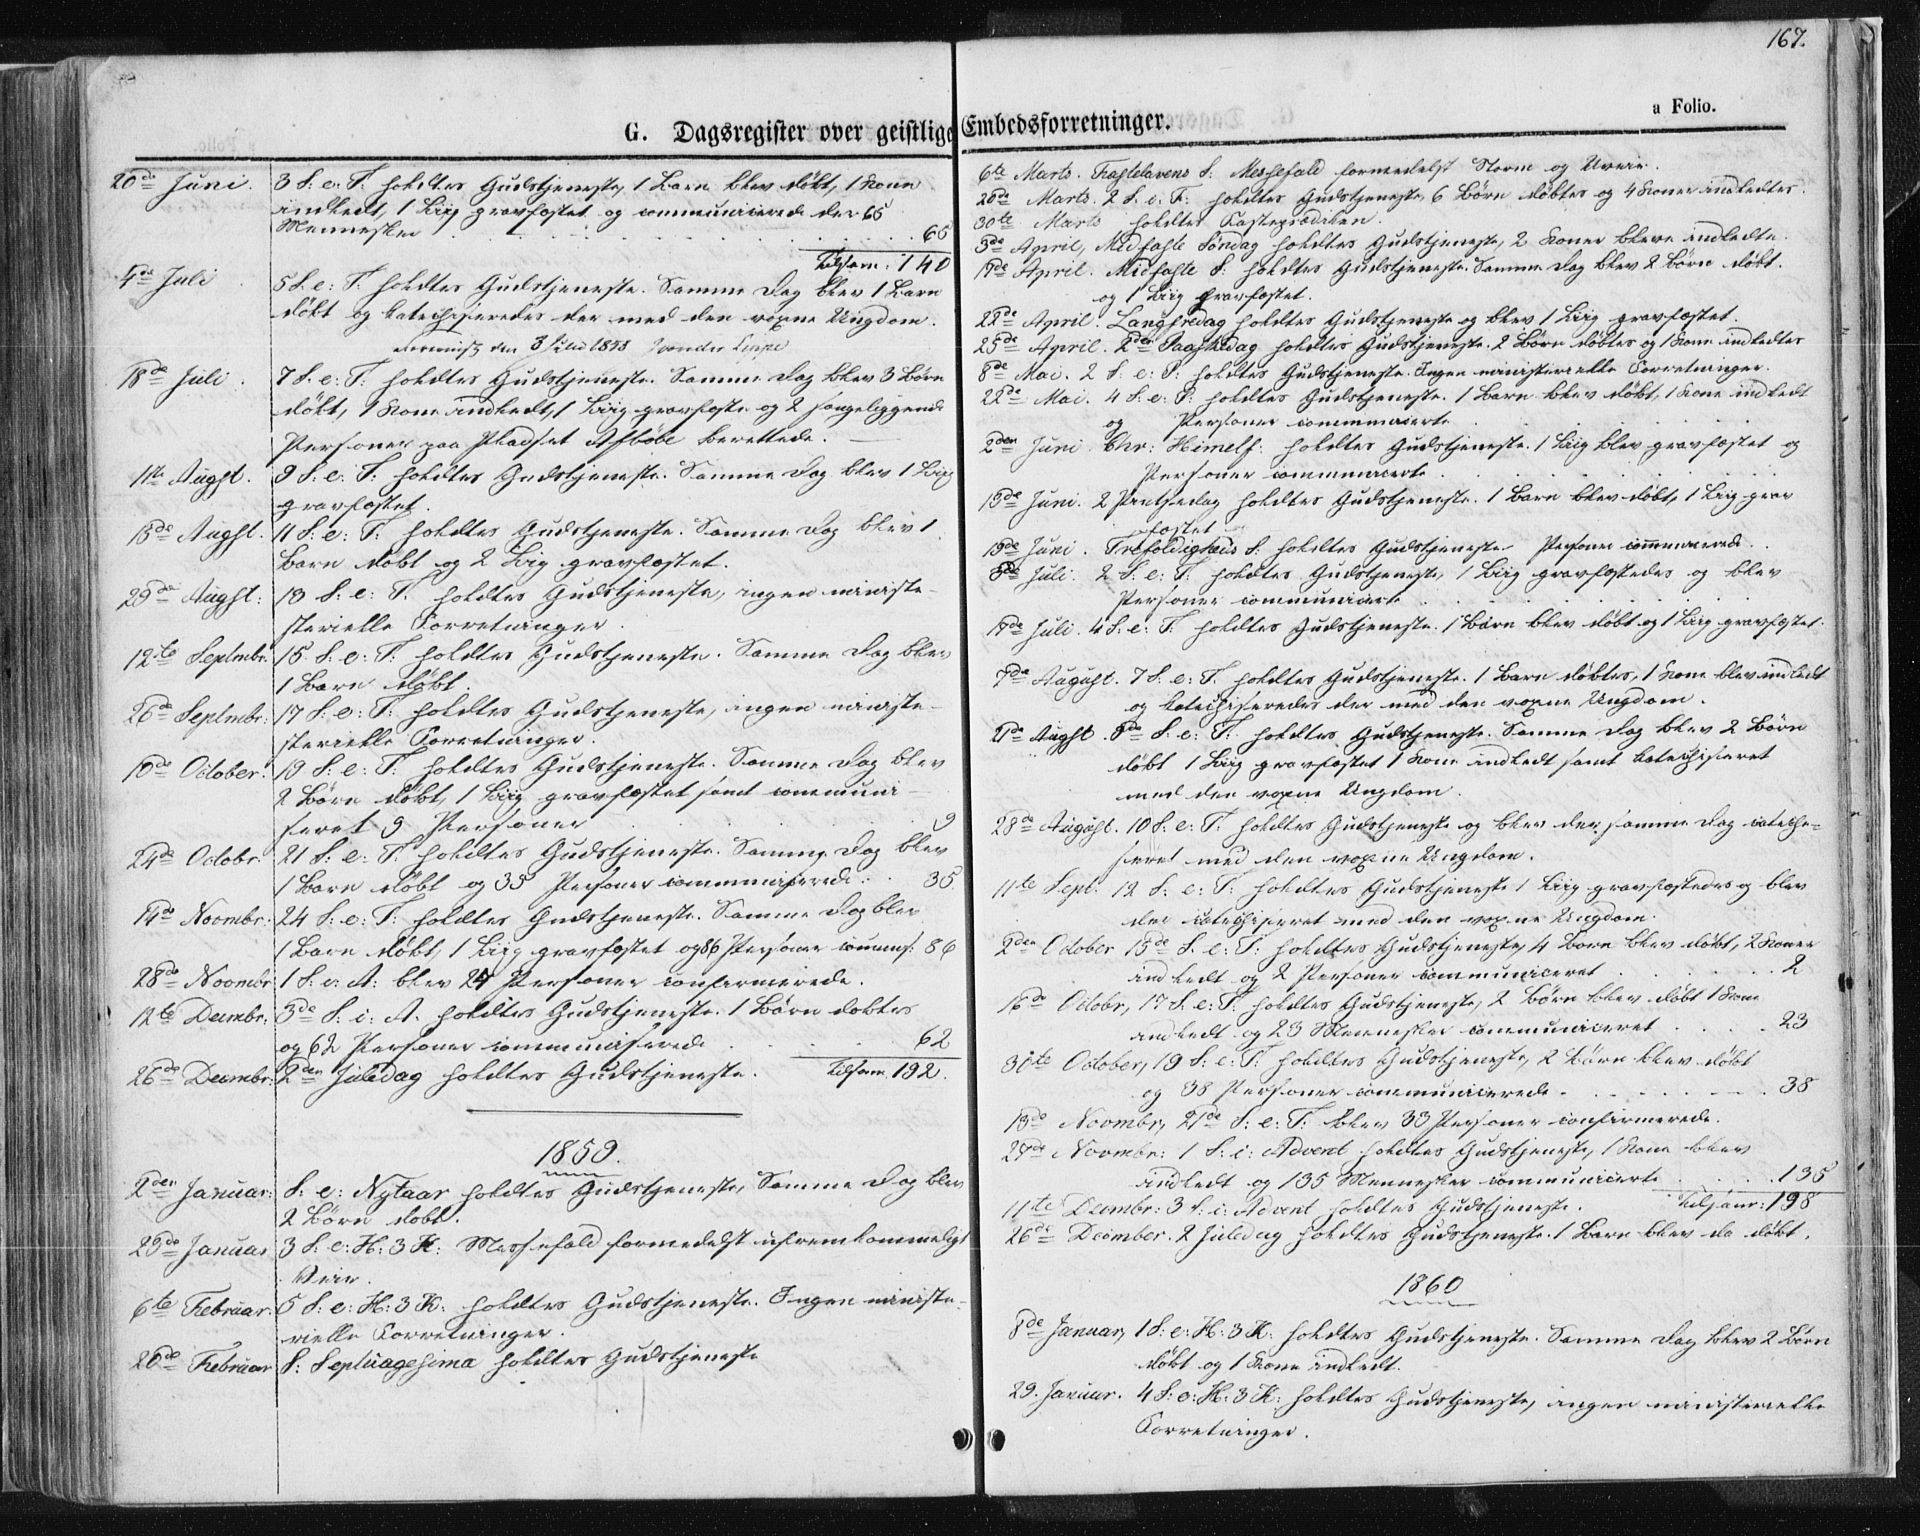 167.
a Folio.
G. Dagsregister over geistlige Embedsforretninger.
20de Juni. 3 S: e: T: holdtes Gudstjeneste, 1 Barn blev døbt, 1 Kone
indledt, 1 Liig gravfæstet og communicerede der 65
Mennesker 65
Tilsam: 140
4de Juli 5 S. e: T: holdtes Gudstjeneste. Samme Dag blev 1 Barn
døbt og katechiseredes der med den voxne Ungdom.
den 3 Juli 1858
18de Juli. 7 S. e: T: holdtes Gudstjeneste. Samme Dag blev 3 Børn
døbt, 1 Kone indledt, 1 Liig gravfæste og 2 sengeliggende
Personer paa Pladset berettede.
11te Augst. 9 S. e: T: holdtes Gudstjeneste. Samme Dag blev 1 Liig
gravfæstet.
15de Augst. 11 S: e: T: holdtes Gudstjeneste. Samme Dag blev 1
Barn døbt og 2 Liig gravfæstet.
29de Augst: 13 S: e: T. holdtes Gudstjeneste, ingen ministe-
sterielle Forretninger.
12te Septmbr: 15 S: e: T: holdtes Gudstjeneste. Samme Dag blev
1 Barn døbt.
26de Septmbr: 17 S: e: T: holdtes Gudstjeneste, ingen ministe-
sterielle Forretninger.
10de October: 19 S: e: T: holdtes Gudstjeneste. Samme Dag blev
2 Børn døbt, 1 Liig gravfæstet samt communi-
seret 9 Personer 9
24de Octobr: 21 S: e: T: holdtes Gudstjeneste. Samme Dag blev
1 Barn døbt og 35 Personer communiserede: 35
14de Novmbr: 24 S: e: T: holdtes Gudstjeneste. Samme Dag blev
1 Barn døbt, 1 Liig gravfæstet og 86 Personer comuns: 86
28de Novmbr 1 S: e: A: blev 24 Personer confirmerede.
12te Decmbr: 3de S: i: A. holdtes Gudstjeneste. 1 Børn døbtes
og 62 Personer communiserede 62
26de Decmbr: 2den Juledag holdtes Gudstjeneste. Tilsam. 192.
1859.
2den Januar: S: e: Nytaar holdtes Gudstjeneste, Samme Dag blev
2 Børn døbt.
Januar 3 S: e: H: 3 K: Messefald formedelst ufremkommeligt
Veir.
6te Februar: 5 S: e: H: 3 K: holdtes Gudstjeneste. Ingen ministe-
rielle Forretninger.
20de Februar S: Septuagesima holdtes Gudstjeneste
6te Marts. Fastelavens S: Messefald formedelst Storm og Uveir.
20de Marts. 2 S: e: F: holdtes Gudstjeneste, 6 Børn døbtes og 4 Koner indledtes.
30te Marts holdtes Fasteprædiken.
3de April, Midfaste Søndag holdtes Gudstjeneste, 2 Koner bleve indledte.
17de April. Midfaste S: holdtes Gudstjeneste. Samme Dag blev 2 Børn døbt.
og 1 Liig gravfæstet.
22de April. Langfredag holdtes Gudstjeneste og blev 1 Liig gravfæstet.
25de April. 2den Paaskedag holdtes Gudstjeneste. 2 Børn døbtes og 1 Kone indledtes
8de Mai. 2 S: e: P: holdtes Gudstjeneste. Ingen ministerielle Forretninger.
22de Mai. 4 S: e: P: holdtes Gudstjeneste. 1 Barn blev døbt, 1 Kone indledt
og Personer communicerte
2den Juni. Chr: Himelf: holdtes Gudstjeneste. 1 Liig blev gravfæstet og
Personer communicerte
13de Juni. 2 Pintsedag holdtes Gudstjeneste. 1 Barn blev døbt, 1 Liig grav
fæstet
19de Juni. Trefoldigheds S: holdtes Gudstjeneste Personer communicerede
3de Juli. 2 S: e: T: holdtes Gudstjeneste, 1 Liig gravfæstedes og blev
Personer communicerte
17de Juli. 4 S: e: T: holdtes Gudstjeneste. 1 Børn blev døbt og 1 Liig gravfæstet.
7de August. 7 S: e: T. holdtes Gudstjeneste. 1 Barn døbtes, 1 Kone blev indledt
og katechiseredes der med den voxne Ungdom.
21de Augst. 9de S: e: T: holdtes Gudstjeneste. Samme Dag blev 2 Børn
døbt 1 Liig gravfæstet 1 Kone indledt samt katechiseret
med den voxne Ungdom.
28de August. 10 S: e: T: holdtes Gudstjeneste og blev der samme Dag cateche-
seret med den voxne Ungdom.
11te Sept: 12 S: e: T: holdtes Gudstjeneste 1 Liig gravfæstedes og blev
der catechiseret med den voxne Ungdom.
2den October 15de S: e: T: holdtes Gudstjeneste, 4 Børn blev døbt, 2 Koner
indledt og 2 Personer communiceret 2
16de Octobr, 17 S: e: T: holdtes Gudstjeneste, 2 Børn blev døbt 1 Kone
indledt og 23 Mennesker communiceret 23
30te October, 19 S: e: T: holdtes Gudstjeneste, 2 Børn blev døbt
og 38 Personer communicerede 38
13de Novmbr, 21de S: e: T: blev 33 Personer confirmerede.
27de Novmbr: 1 S: i: Advent holdtes Gudstjeneste, 1 Kone blev
indledt og 135 Mennesker communicerte 135
11te Decmbr: 3 S: i: Advent holdtes Gudstjeneste. Tilsam: 198
26de December. 2 Juledag holdtes Gudstjeneste. 1 Barn blev da døbt.
1860
8de Januar, 1 S: e: H: 3 K: holdtes Gudstjeneste. Samme Dag blev 2 Børn
døbt og 1 Kone indledt.
29. Januar. 4 S: e: H: 3 K: holdtes Gudstjeneste, ingen ministerielle
Forretninger.